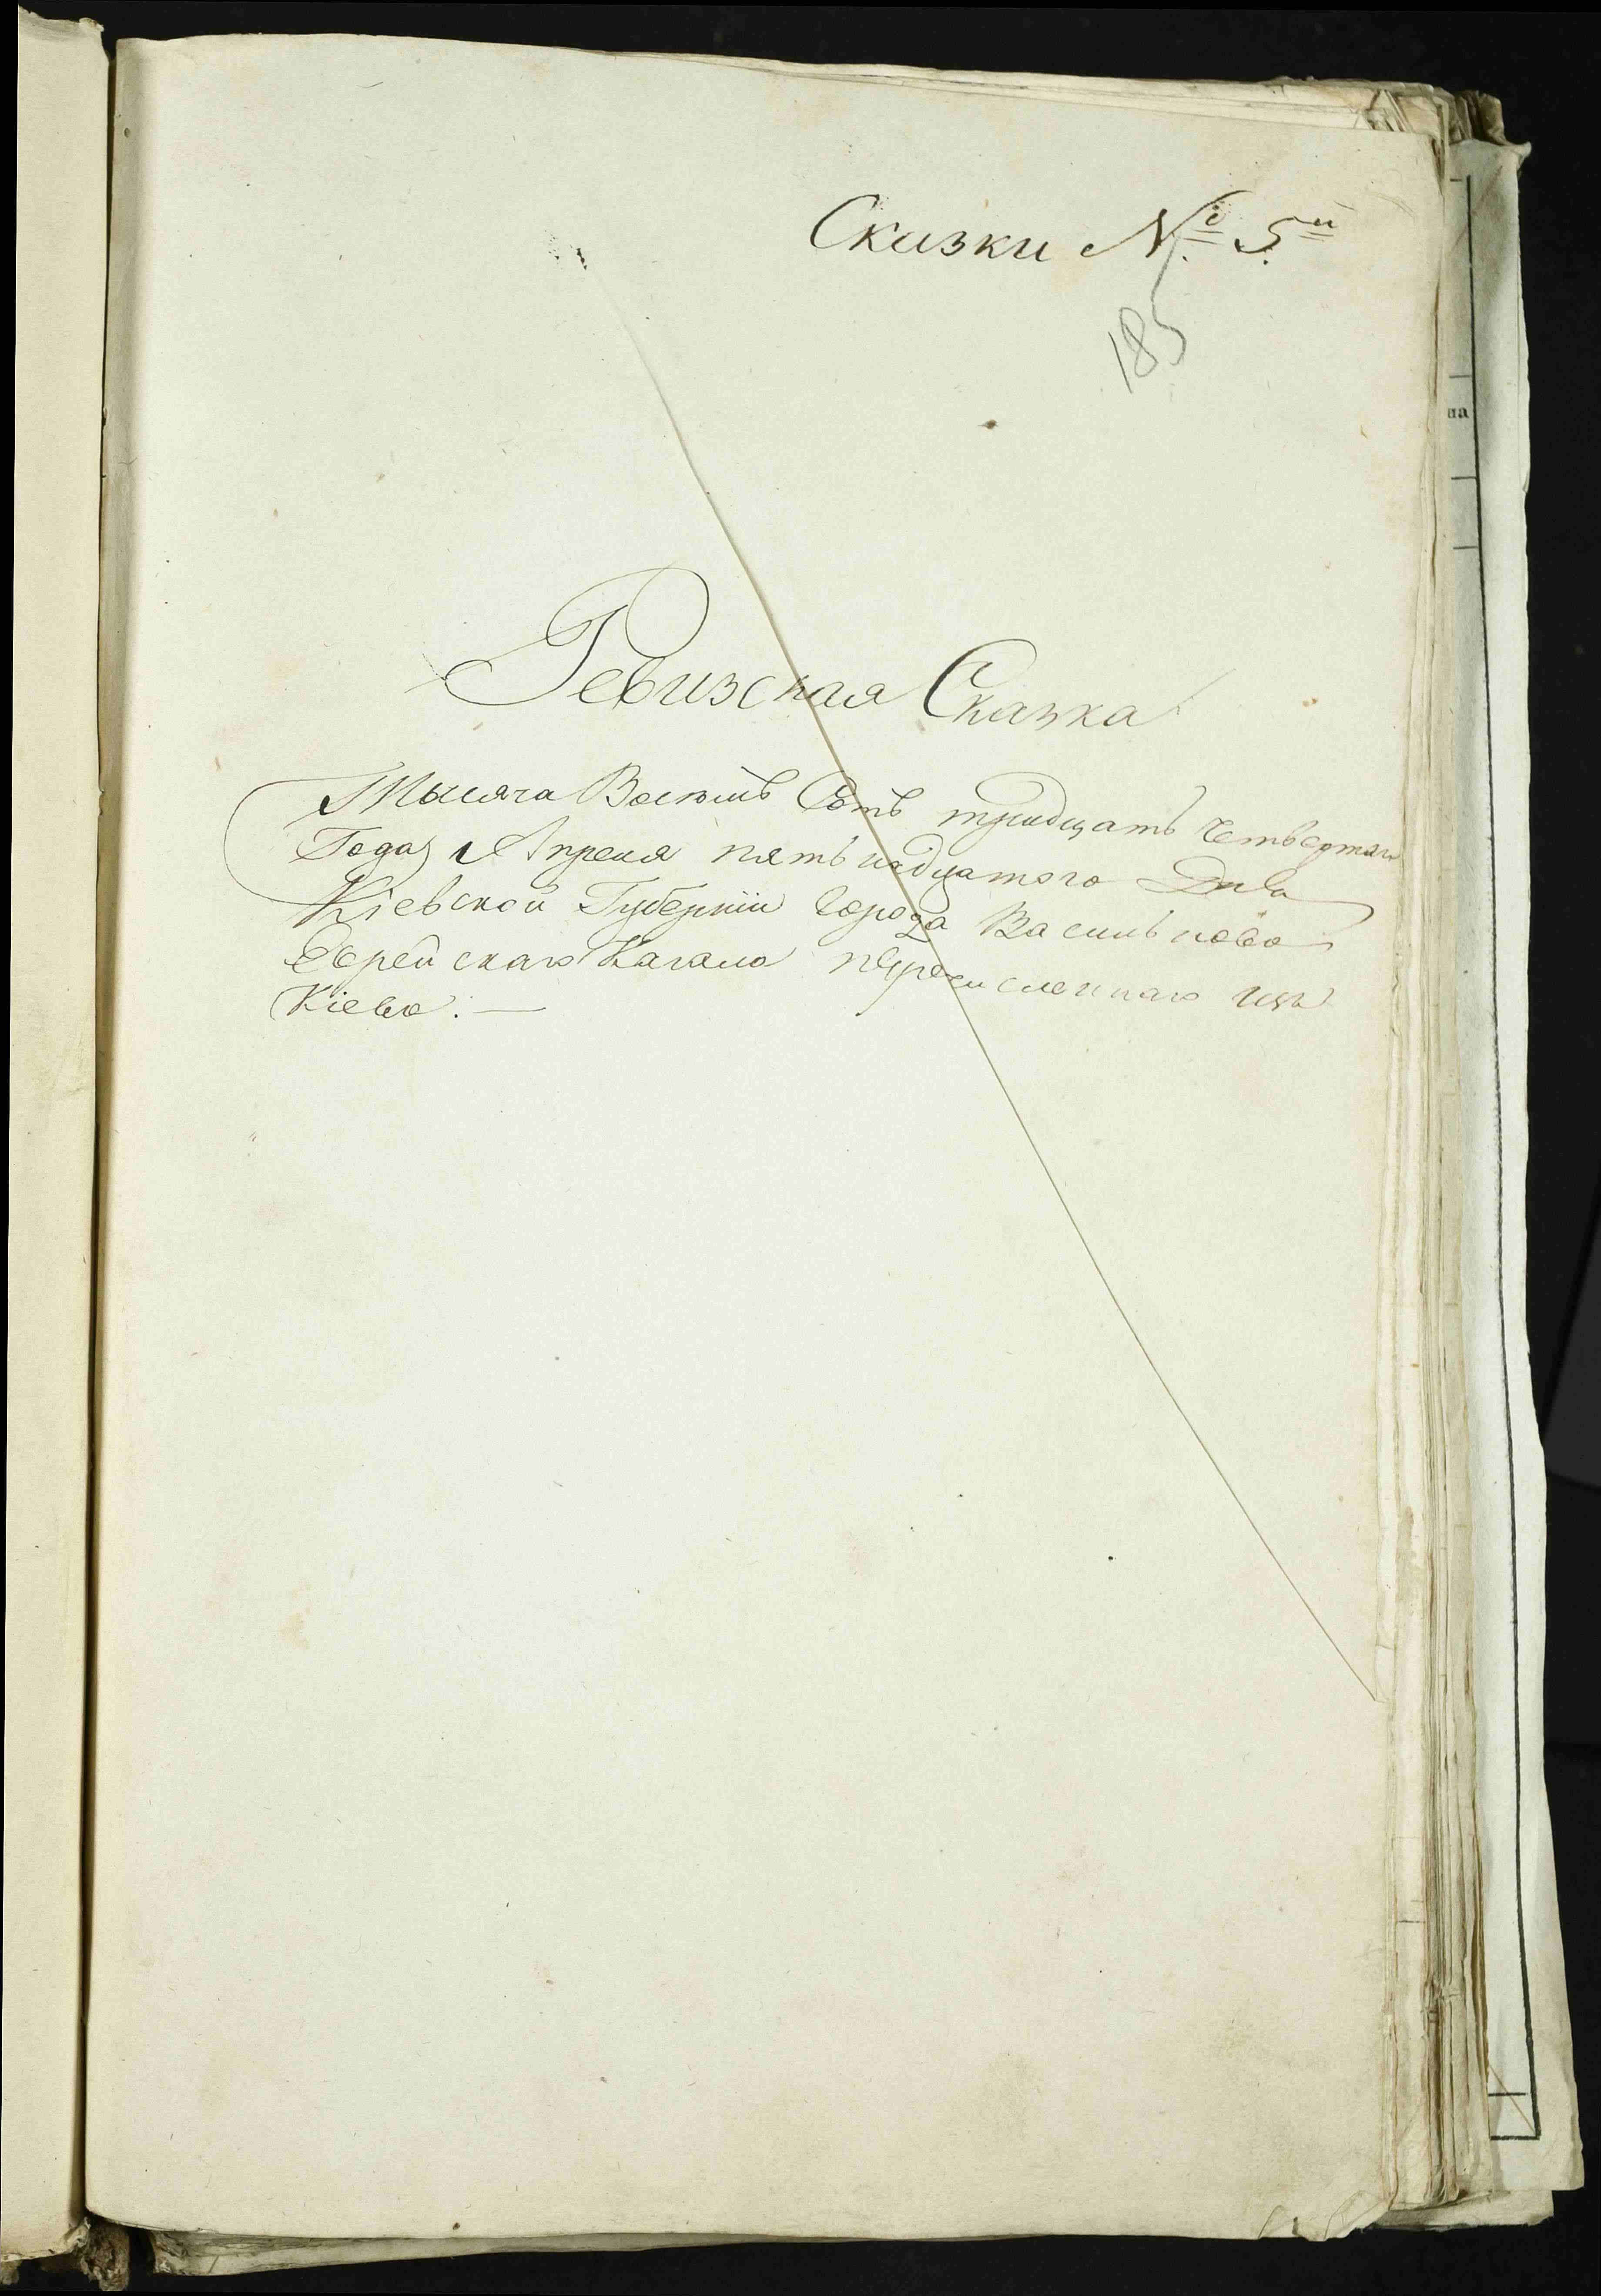 Сказки №. 5й
185
Ревизская Сказка
Тысяча Восемь Сотъ тридцать Четвертаго
Года Апреля пятьнадцатого Дня
Кіевской Губерніи Города Василькова
Еврейскаго Кагала перечисленнаго изъ
Кіева. —
на